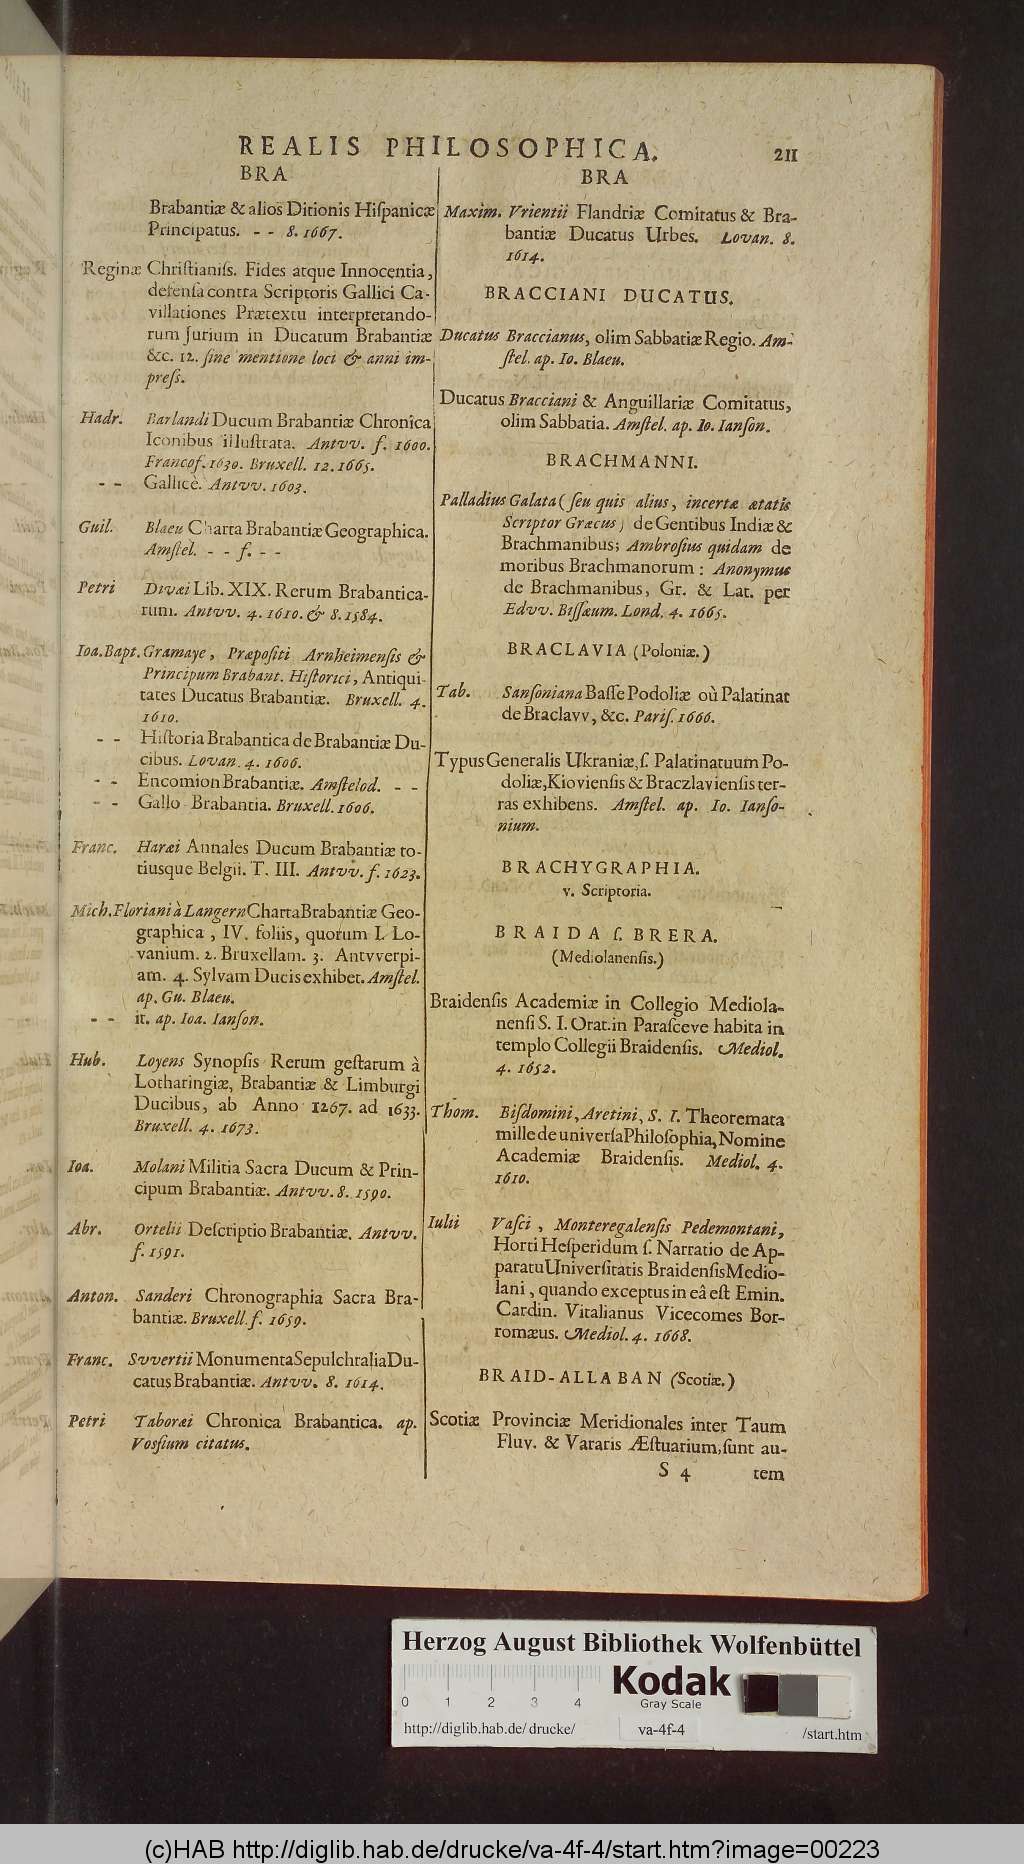 REALIS PHILOSOPHICA. 211
BRA
Brabantiæ & alios Ditionis Hiſpanicæ
Principatus. - - 8. 1667.
Reginæ Chriſtianiſs. Fides atque Innocentia,
defenſa contra Scriptoris Gallici Ca-
villationes Prætextu interpretando-
rum Jurium in Ducatum Brabantiæ
&c. 12. ſine mentione loci & anni im-
preſs.
Hadr. Barlandi Ducum Brabantiæ Chronica
Iconibus illuſtrata. Antvv. f. 1600.
Francof. 1630. Bruxell. 12. 1665.
- - Gallicè. Antvv. 1603.
Guil. Blaeu Charta Brabantiæ Geographica.
Amſtel. - - f. - -
Petri Divæi Lib. XIX. Rerum Brabantica-
rum. Antvv. 4. 1610. & 8. 1584.
Ioa. Bapt. Gramaye, Præpoſiti Arnheimenſis &
Principum Brabant. Hiſtorici, Antiqui-
tates Ducatus Brabantiæ. Bruxell. 4.
1610.
- - Hiſtoria Brabantica de Brabantiæ Du-
cibus. Lovan. 4. 1606.
- - Encomion Brabantiæ. Amſtelod. - -
- - Gallo-Brabantia. Bruxell. 1606.
Franc. Haræi Annales Ducum Brabantiæ to-
tiusque Belgii. T. III. Antvv. f. 1623.
Mich. Floriani à Langern Charta Brabantiæ Geo-
graphica, IV. foliis, quorum I. Lo-
vanium. 2. Bruxellam. 3. Antvverpi-
am. 4. Sylvam Ducis exhibet. Amſtel.
ap. Gu. Blaeu.
- - it. ap. Ioa. Ianſon.
Hub. Loyens Synopſis Rerum geſtarum à
Lotharingiæ, Brabantiæ & Limburgi
Ducibus, ab Anno 1267. ad 1633.
Bruxell. 4. 1673.
Ioa. Molani Militia Sacra Ducum & Prin-
cipum Brabantiæ. Antvv. 8. 1590.
Abr. Ortelii Deſcriptio Brabantiæ. Antvv.
f. 1591.
Anton. Sanderi Chronographia Sacra Bra-
bantiæ. Bruxell. f. 1659.
Franc. Svvertii Monumenta Sepulchralia Du-
catus Brabantiæ. Antvv. 8. 1614.
Petri Taboræi Chronica Brabantica. ap.
Voſſium citatus.
BRA
Maxim. Vrientii Flandriæ Comitatus & Bra-
bantiæ Ducatus Urbes. Lovan. 8.
1614.
BRACCIANI DUCATUS.
Ducatus Braccianus, olim Sabbatiæ Regio. Am-
ſtel. ap. Io. Blaeu.
Ducatus Bracciani & Anguillariæ Comitatus,
olim Sabbatia. Amſtel. ap. Io. Ianſon.
BRACHMANNI.
Palladius Galata (ſeu quis alius, incertæ ætatis
Scriptor Græcus) de Gentibus Indiæ &
Brachmanibus; Ambroſius quidam de
moribus Brachmanorum: Anonymus
de Brachmanibus, Gr. & Lat. per
Edvv. Biſſæum. Lond. 4. 1665.
BRACLAVIA (Poloniæ.)
Tab. Sanſoniana Baſſe Podoliæ où Palatinat
de Braclavv, &c. Pariſ. 1666.
Typus Generalis Ukraniæ, ſ. Palatinatuum Po-
doliæ, Kiovienſis & Braczlavienſis ter-
ras exhibens. Amſtel. ap. Io. Ianſo-
nium.
BRACHYGRAPHIA.
v. Scriptoria.
BRAIDA ſ. BRERA.
(Mediolanenſis.)
Braidenſis Academiæ in Collegio Mediola-
nenſi S. I. Orat. in Paraſceve habita in
templo Collegii Braidenſis. Mediol.
4. 1652.
Thom. Biſdomini, Aretini, S. I. Theoremata
mille de univerſa Philoſophia, Nomine
Academiæ Braidenſis. Mediol. 4.
1610.
Iulii Vaſci, Monteregalenſis Pedemontani,
Horti Heſperidum ſ. Narratio de Ap-
paratu Univerſitatis Braidenſis Medio-
lani, quando exceptus in eâ eſt Emin.
Cardin. Vitalianus Vicecomes Bor-
romæus. Mediol. 4. 1668.
BRAID-ALLABAN (Scotiæ.)
Scotiæ Provinciæ Meridionales inter Taum
Fluv. & Vararis Æſtuarium, ſunt au-
S 4 tem
Herzog August Bibliothek Wolfenbüttel
0 1 2 3 4
Kodak
Gray Scale
http://diglib.hab.de/drucke/ va-4f-4 /start.htm
(c)HAB http://diglib.hab.de/drucke/va-4f-4/start.htm?image=00223